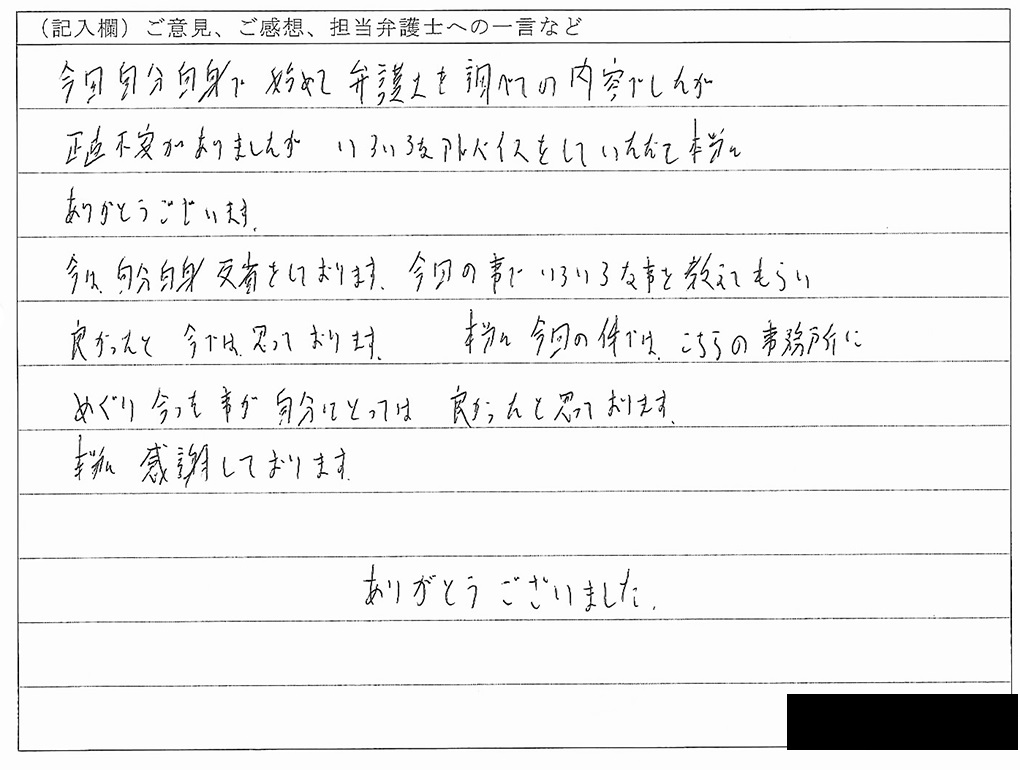 （記入欄）ご意見、ご感想、担当弁護士への一言など
今回自分自身で 始めて 弁護士を調べての内容でしたが
正直不安がありましたが いろいろなアドバイスをしていただだて本当に
ありがとうございます。
今は、自分自身反省をしております。今回の事でいろいろな事を教えてもらい
良かったと 今では、思っております。 本当に 今回の件では、こちらの事務所に
めぐり 今った 事が 自分にとっては 良かったと思っております。
本当に 感謝しております。
ありがとうございました。